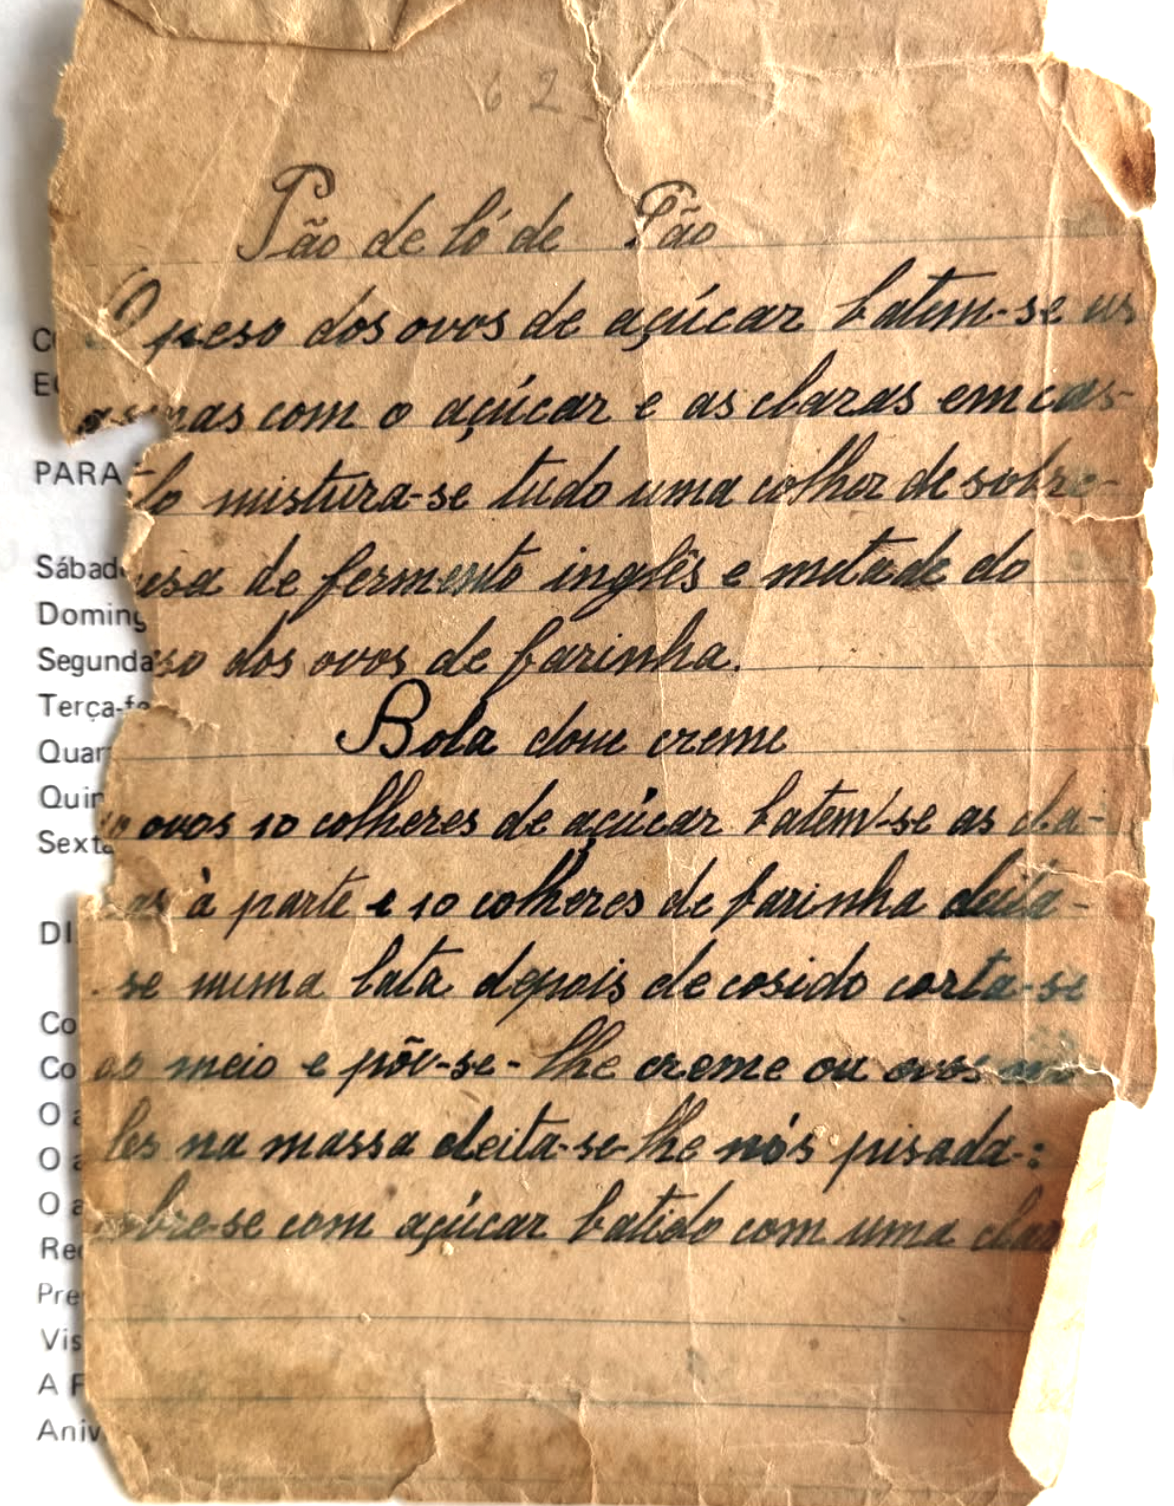 62
Pão de ló de Pão
O peso dos ovos de açúcar batem-se as
com o açúcar e as claras em cas-
lo mistura-se tudo uma colher de sobre-
esa de fermento inglês e metade do
so dos ovos de farinha.
Bola doue creme
ovos 10 colheres de açúcar batem-se as cla-
as à parte e 10 colheres de farinha deita-
se numa lata depois de cosido corta-se
ao meio e põe-se-lhe creme ou ovos mo
les na massa deita-se-lhe nós pisada:
obre-se com açúcar batido com uma clar
PARA
Sábad
Doming
Segunda
Terça-fe
Quar
Quin
Sexta
DI
Co
Co
O a
O a
O a
Re
Pre
Vis
A F
Aniv